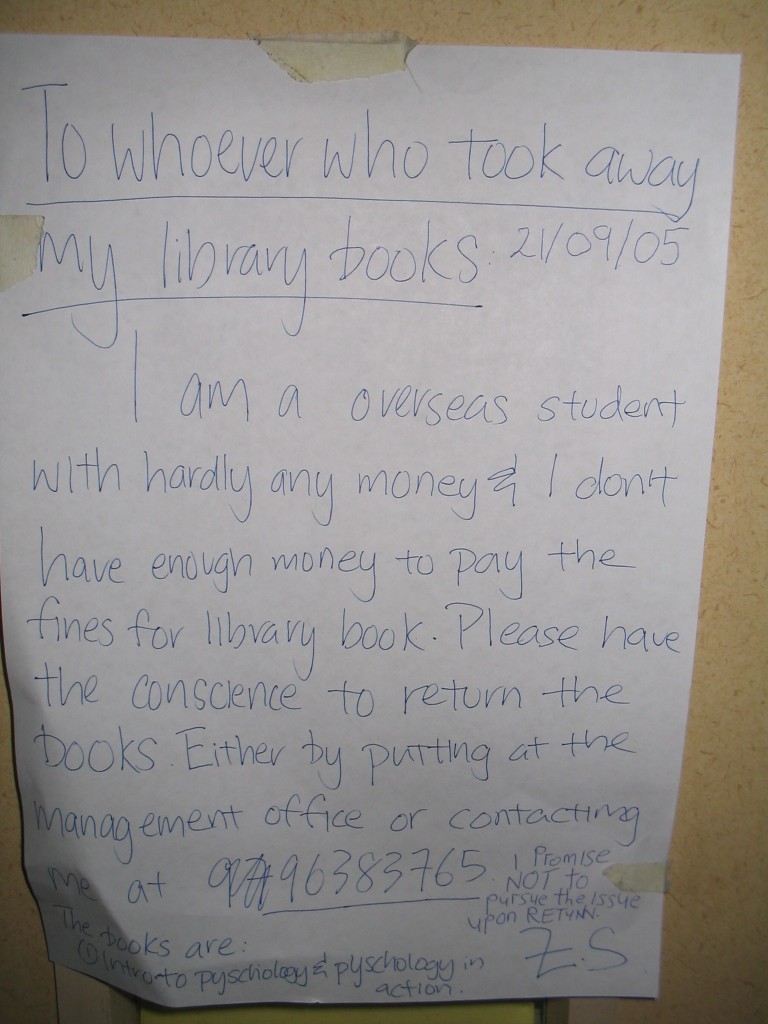 To whoever who took away
my library books: 21/09/05
I am a overseas student
with hardly any money & I don't
have enough money to pay the
fines for library book. Please have
the conscience to return the
books. Either by putting at the
management office or contacting
me at 96383765
I Promise
NOT to
pursue the issue
upon RETURN.
The books are:
① Intro to pyschology & pyschology in
action.
Z.S